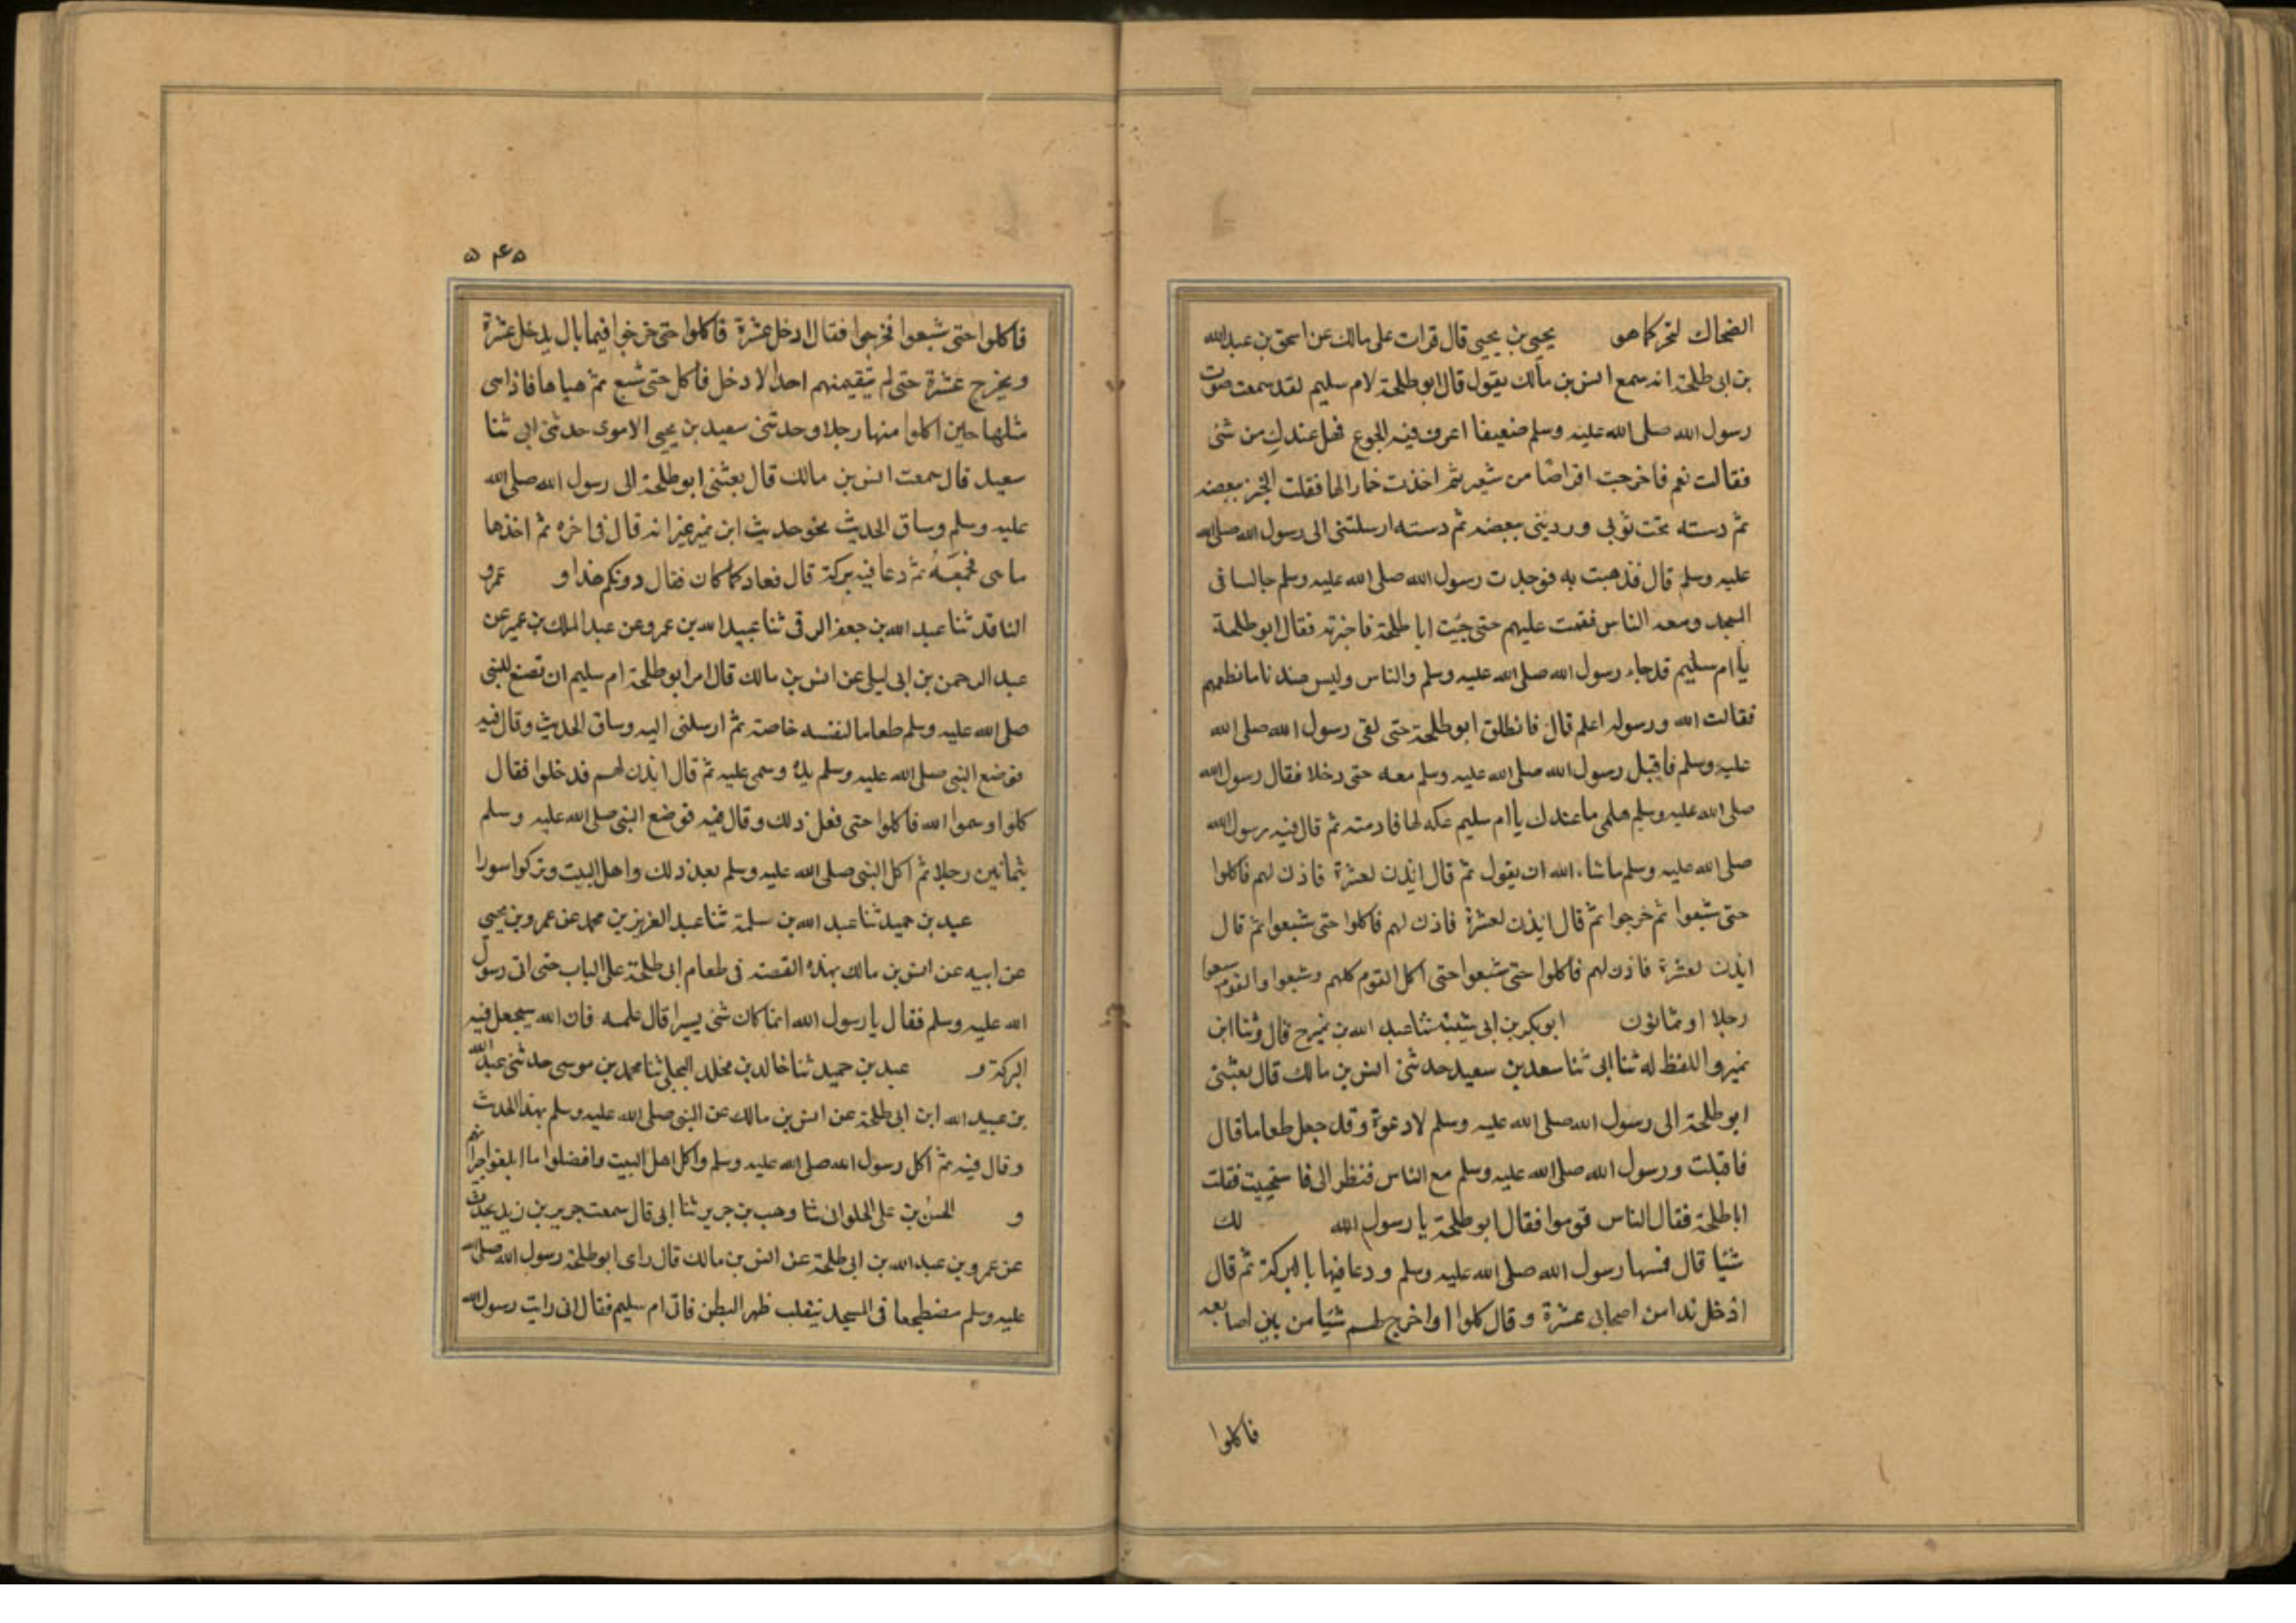 الضحاك لتحركما هو يحيى بن يحيى قال قرات على مالك عن اسحق بن عبد الله
بن ابى طلحة انه سمع انس بن مالك يقول قال ابو طلحة لام سليم لقد سمعت صوت
رسول الله صلى الله عليه وسلم ضعيفا اعرف فيه الجوع فهل عندك من شئ
فقالت نعم فاخرجت اقراصا من شعير ثم اخذت خمارا لها فقلت الخبز ببعضه
ثم دسته تحت ثوبى وردينى ببعضه ثم دسته ارسلتنى الى رسول الله صلى الله
عليه وسلم قال فذهبت به فوجدت رسول الله صلى الله عليه وسلم جالسا فى
المسجد ومعه الناس فقمت عليهم حتى جئت ابا طلحة فاخبرته فقال ابو طلحة
يا ام سليم قد جاء رسول الله صلى الله عليه وسلم والناس وليس عندنا ما نطعمهم
فقالت الله ورسوله اعلم قال فانطلق ابو طلحة حتى لقى رسول الله صلى الله
عليه وسلم فاقبل رسول الله صلى الله عليه وسلم معه حتى دخلا فقال رسول الله
صلى الله عليه وسلم هلمى ما عندك يا ام سليم عكه لها فادمته ثم قال فيه رسول الله
صلى الله عليه وسلم ما شاء الله ان يقول ثم قال ائذن لعشرة فاذن لهم فاكلوا
حتى شبعوا ثم خرجوا ثم قال ائذن لعشرة فاذن لهم فاكلوا حتى شبعوا ثم قال
ائذن لعشرة فاذن لهم فاكلوا حتى شبعوا حتى اكل القوم كلهم وشبعوا والقوم سبعوا
رجلا او ثمانون ابو بكر بن ابى شيبة ثنا عبد الله بن نمير ح قال وثنا ابن
نمير واللفظ له ثنا ابى ثنا سعد بن سعيد حدثنى انس بن مالك قال بعثنى
ابو طلحة الى رسول الله صلى الله عليه وسلم لادعوة وقد جعل طعاما قال
فاقبلت ورسول الله صلى الله عليه وسلم مع الناس فنظر الى فاستحييت فقلت
ابا طلحة فقال الناس قوموا فقال ابو طلحة يا رسول الله لك
شيئا قال فمسها رسول الله صلى الله عليه وسلم ودعا فيها بالبركة ثم قال
ادخل ندا من اصحابى عشرة وقال كلوا او اخرج لهم شيئا من بين اصابعه
فاكلوا
۵۴۵
فاكلوا حتى شبعوا فخرجوا فقال ادخل عشرة فاكلوا حتى خرجوا فيما بال يدخل عشرة
ويخرج عشرة حتى لم يبق منهم احد الا دخل فاكل حتى شبع ثم هياها فاذا هى
مثلها حين اكلوا منها رجلا وحدثنى سعيد بن يحيى الاموى حدثنى ابى ثنا
سعيد قال سمعت انس بن مالك قال بعثنى ابو طلحة الى رسول الله صلى الله
عليه وسلم وساق الحديث نحو حديث ابن نمير غير انه قال فى اخره ثم اخذها
ما هى فجمعه ثم دعا فيه بركة قال فعاد كما كان فقال دونكم هذا و عمرو
الناقد ثنا عبد الله بن جعفر الرقى ثنا عبيد الله بن عمرو عن عبد الملك بن عمير عن
عبد الرحمن بن ابى ليلى عن انس بن مالك قال امر ابو طلحة ام سليم ان تصنع للنبى
صلى الله عليه وسلم طعاما لنفسه خاصة ثم ارسلنى اليه وساق الحديث وقال فيه
فوضع النبى صلى الله عليه وسلم يده وسمى عليه ثم قال ائذن لهم فدخلوا فقال
كلوا وسموا الله فاكلوا حتى فعل ذلك وقال فيه فوضع النبى صلى الله عليه وسلم
بثمانين رجلا ثم اكل النبى صلى الله عليه وسلم بعد ذلك واهل البيت وتركوا سورا
عبد بن حميد ثنا عبد الله بن سلمة ثنا عبد العزيز بن محمد عن عمرو بن يحيى
عن ابيه عن انس بن مالك بهذه القصة فى طعام ابى طلحة على الباب حتى اتى رسول
الله عليه وسلم فقال يا رسول الله انما كان شئ يسيرا قال هلمه فان الله سيجعل فيه
البركة و عبد بن حميد ثنا خالد بن مخلد البجلى ثنا محمد بن موسى حدثنى عبد الله
بن عبيد الله ابن ابى طلحة عن انس بن مالك عن النبى صلى الله عليه وسلم بهذا الحديث
وقال فيه ثم اكل رسول الله صلى الله عليه وسلم واكل اهل البيت وافضلوا ما ابلغوا جيرانهم
و الحسن بن على الحلوانى ثنا وهب بن جرير ثنا ابى قال سمعت جرير بن زيد يحدث
عن عمرو بن عبد الله بن ابى طلحة عن انس بن مالك قال راى ابو طلحة رسول الله صلى الله
عليه وسلم مضطجعا فى المسجد يتقلب ظهر البطن فاتى ام سليم فقال انى رايت رسول الله